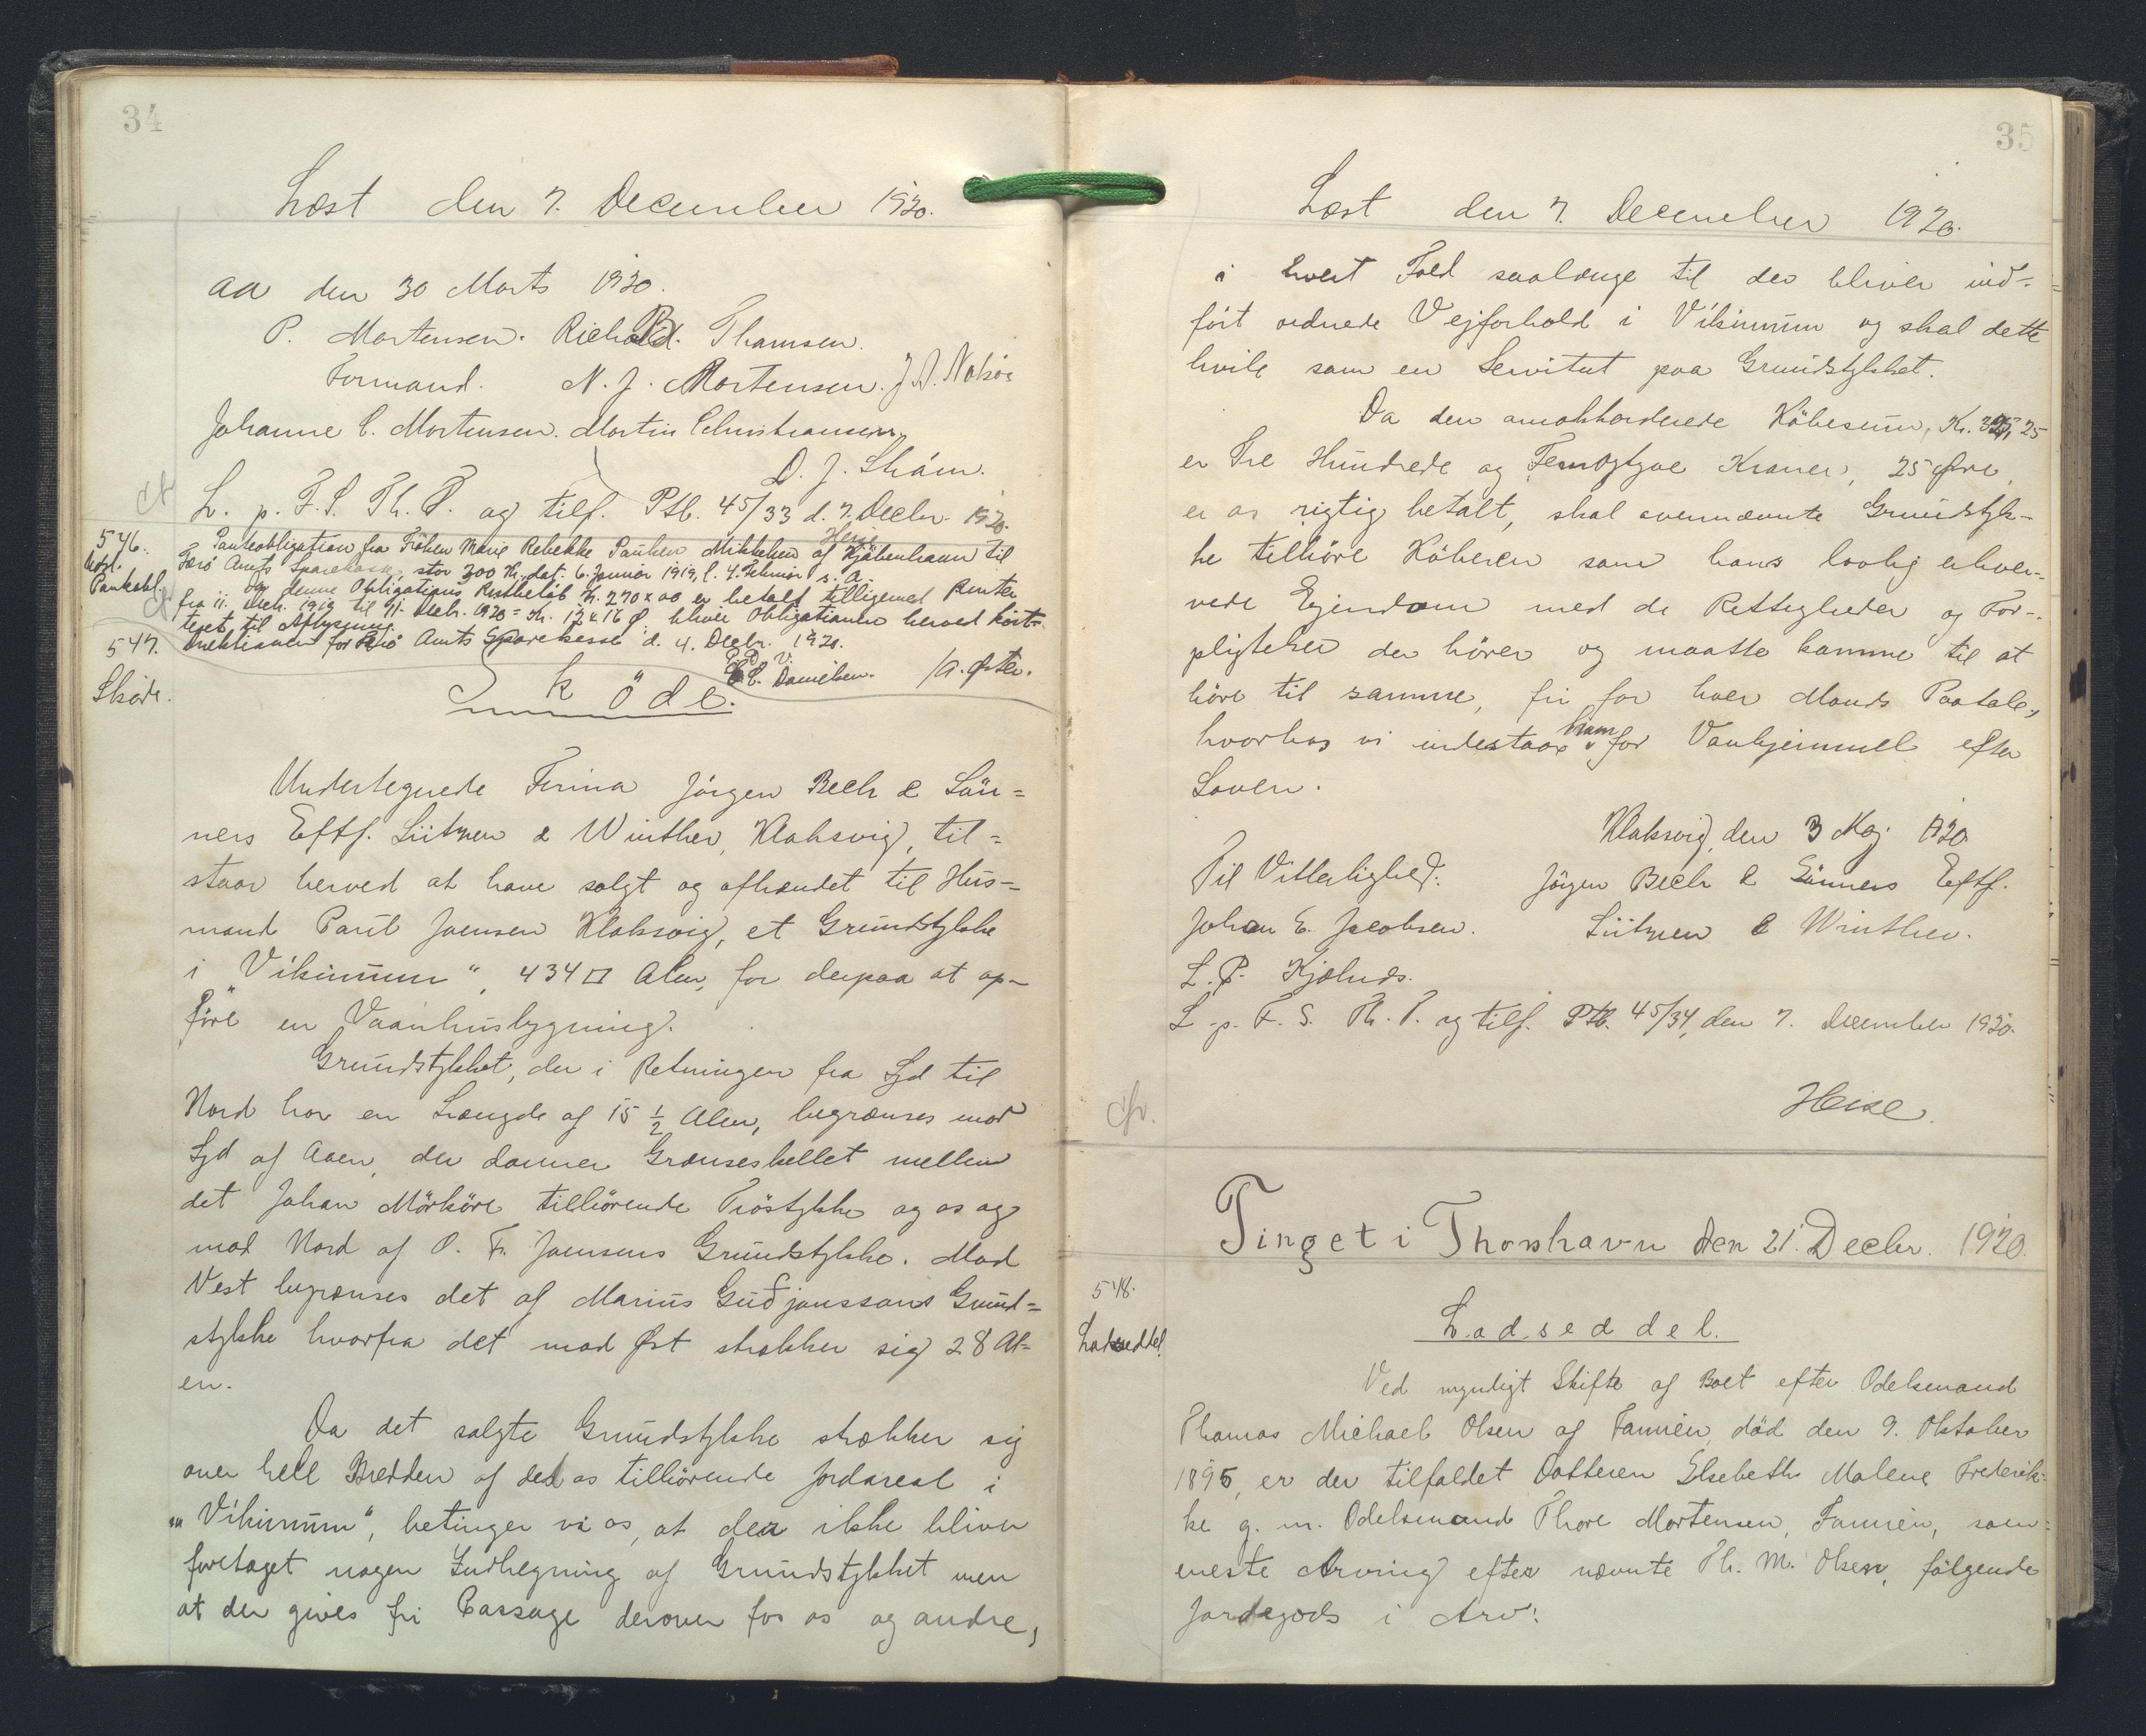 34
Læst den 7. December 1920.
aa den 30 Marts 1920.
P. Mortensen. Richard. Thomsen.
Formand. N. J. Mortensen. J. A. Nolsöe
Johanne C. Mortensen. Martin Christiansen.
D. J. Skám.
L. p. F. S. Th. T. og tilf. Ptb. 45/33 d. 7. Decbr. 1920.
Heise
546.
Udsl.
Pantobl.
Pantobligation fra Fröken Marie Rebekke Pauline Mikkelsen af Kjöbenhavn til
Færö Amts Sparekasse, stor 300 Kr., dat. 6. Januar 1919, l. 4. Februar s. A.
Da denne Obligations Restbelöb Kr. 270 x 00 er betalt tilligemed Renter
fra 11. Decb. 1919 til 11. Decb. 1920 = Kr. 17 x 16 Ø. bliver Obligationen herved kvit-
teret til Aflysning.
Direktionen for Færö Amts Sparekasse d. 4. Decbr. 1920.
P. D. V.
C. C. Danielsen. /A. Øster.
547.
Sköde.
Sköde.
Undertegnede Firma Jörgen Bech & Sön=
ners Eftf. Lützen & Winther, Klaksvig, til=
staar herved at have solgt og afhændet til Hus=
mand Paul Joensen Klaksvig, et Grundstykke
i "Vikinum", 434 □ Alen, for derpaa at op-
före en Vaanhusbygning.
Grundstykket, der i Retningen fra Syd til
Nord har en Længde af 15 1/2 Alen, begrænses mod
Syd af Aaen, der danner Grænseskellet mellem
det Johan Mörköre tilhörende Tröstykke og os og
mod Nord af O. Fr. Joensens Grundstykke. Mod
Vest begrænses det af Marius Guðjonssons Grund=
stykke hvorfra det mod Øst strækker sig 28 Al=
en.
Da det solgte Grundstykke strækker sig
over hele Bredden af det os tilhörende Jordareal i
"Vikinum", betinger vi os, at der ikke bliver
foretaget nogen Indhegning af Grundstykket men
at der gives fri Passage derover for os og andre,
35
Læst den 7. December 1920.
i hvert Fald saalænge til der bliver ind-
fört ordnede Vejforhold i Vikinum og skal dette
hvile som en Servitut paa Grundstykket.
Da den amokkorderede Köbesum, Kr. 325,25
er Tre Hundrede og Femogtyve Kroner, 25 Øre,
er os rigtig betalt, skal ovennævnte Grundstyk-
ke tilhöre Köberen som hans lovlig erhver-
vede Ejendom med de Rettigheder og For-
pligtelser der hörer og maatte komme til at
höre til samme, fri for hver Mands Paatale,
hvorhos vi indestaar ham for Vanhjemmel efter
Loven.
Klaksvig, den 3 Maj 1920
Til Vitterlighed: Jörgen Bech & Sönners Eftf.
Johan E. Jacobsen. Lützen & Winther.
L. P. Kjølnæs.
L. p. F. S. Th. T. og tilf. Ptb. 45/34, den 7. December 1920.
Heise.
Tinget i Thorshavn den 21. Decbr. 1920.
548.
Lodseddel.
Lodseddel.
Ved myndigt Skifte af Boet efter Odelsmand
Thomas Michael Olsen af Famien, död den 9. Oktober
1895, er der tilfaldet Datteren Elsebeth Malene Frederik-
ke g. m. Odelsmand Thore Mortensen, Famien, som
eneste Arving efter nævnte Th. M. Olsen, fölgende
Jordegods i Arv: